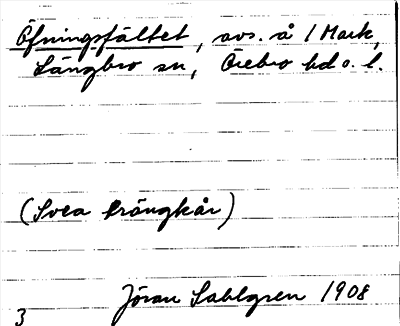 Öfningsfältet, avs. å 1 Mark,
Längbro sn, Örebro hd o. l.
(Svea Trängkår)
Jöran Sahlgren 1908
3